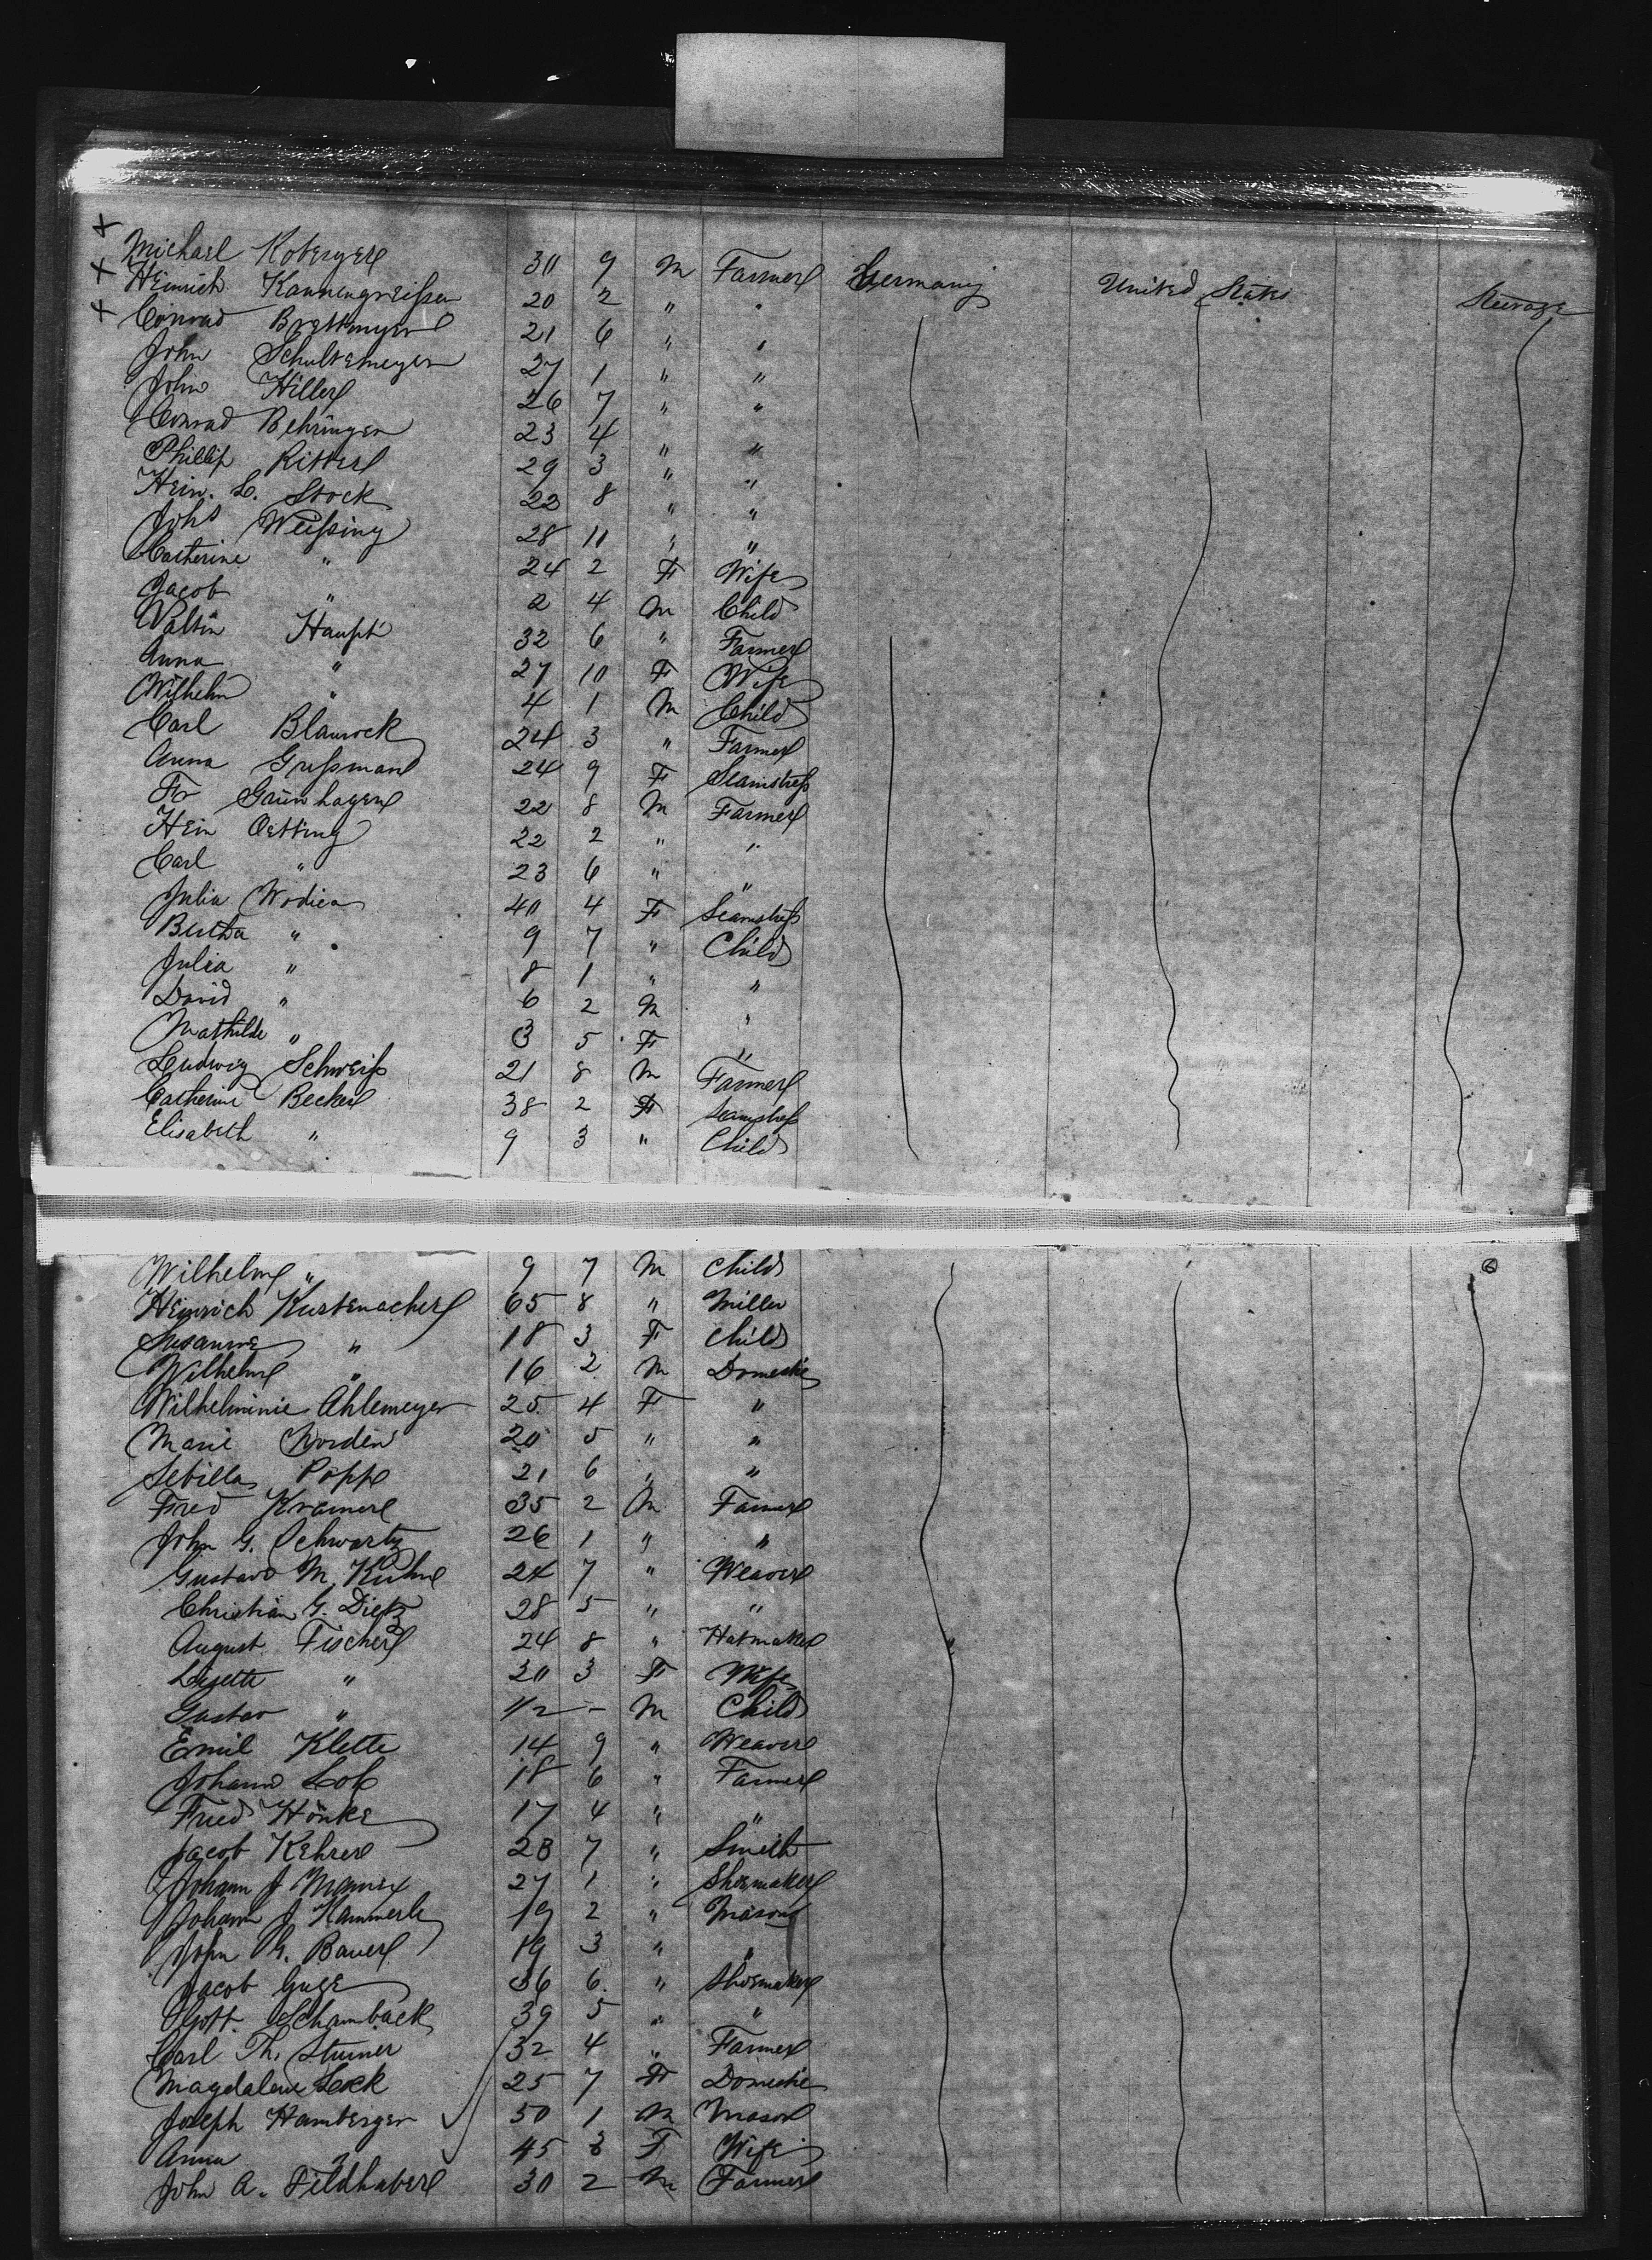 Michael Koberger 30 9 M Farmer Germany United States Steerage
Heinrich Kannengreisser 20 2 " "
Conrad Brettmeyer 21 6 " "
John Schultemeyer 27 1 " "
John Hiller 26 7 " "
Conrad Behringer 23 4 " "
Phillip Ritter 29 3 " "
Hein. L. Stock 22 8 " "
Johs Weissing 28 11 " "
Catherine " 24 2 F Wife
Jacob " 2 4 M Child
Valtin Haupt 32 6 " Farmer
Anna " 27 10 F Wife
Wilhelm " 4 1 M Child
Carl Blaurock 24 3 " Farmer
Anna Gussmann 24 9 F Seamstress
Fr Grünhagen 22 8 M Farmer
Hein Oetting 22 2 " "
Carl " 23 6 " "
Julia Wodica 40 4 F Seamstress
Bertha " 9 7 " Child
Julia " 8 1 " "
David " 6 2 M "
Mathilde " 3 5 F "
Ludwig Schweiss 21 8 M Farmer
Catherine Becker 38 2 F Seamstress
Elisabeth " 9 3 " Child
Wilhelm " 9 7 M Child
Heinrich Kustenacher 65 8 " Miller
Susanne " 18 3 F Child
Wilhelm " 16 2 M Domestic
Wilhelminie Ahlemeyer 25 4 F "
Marie Norden 20 5 " "
Sebilla Poppe 21 6 " "
Fred Kramer 35 2 M Farmer
John G. Schwartz 26 1 " "
Gustav M. Kuhn 24 7 " Weaver
Christian G. Dietz 28 5 " "
August Fischer 24 8 " Hatmaker
Lisette " 20 3 F Wife
Gustav " 1/2 - M Child
Emil Klette 14 9 " Weaver
Johann Lob 18 6 " Farmer
Fried Hönke 17 4 " "
Jacob Kehrer 28 7 " Smith
Johann J 27 1 " Shoemaker
Johann J Hammerle 19 2 " Mason
John G. Bauer 19 3 " "
Jacob 36 6 " Shoemaker
Gott. Schamback 39 5 " "
Carl Th. Sturner 32 4 " Farmer
Magdalene 25 7 F Domestic
Joseph Hamberger 50 1 M Mason
Anna " 45 3 F Wife
John A. Fildhaber 30 2 M Farmer